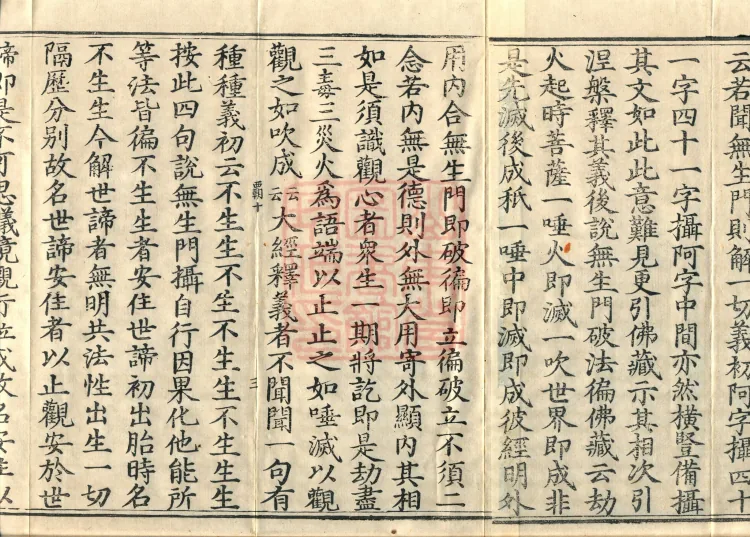 云若聞無生門則解一切義初阿字攝四十
一字四十一字攝阿字中間亦然橫豎備攝
其文如此此意難見更引佛藏示其相次引
涅槃釋其義後說無生門破法徧佛藏云劫
火起時菩薩一唾火即滅一吹世界即成非
是先滅後成秖一唾中即滅即成彼經明外
用內合無生門即破徧即立徧破立不須二
念若內無是德則外無大用寄外顯內其相
如是須識觀心者衆生一期將訖即是劫盡
三毒三災火為語端以止止之如唾滅以觀
觀之如吹成云云大經釋義者不聞聞一句有
霸十
三
種種義初云不生生不生不生生不生生生
按此四句說無生門攝自行因果化他能所
等法皆徧不生生者安住世諦初出胎時名
不生生今解世諦者無明共法性出生一切
隔歷分別故名世諦安住者以止觀安於世
諦即是不可思議境觀行並成故名安住以